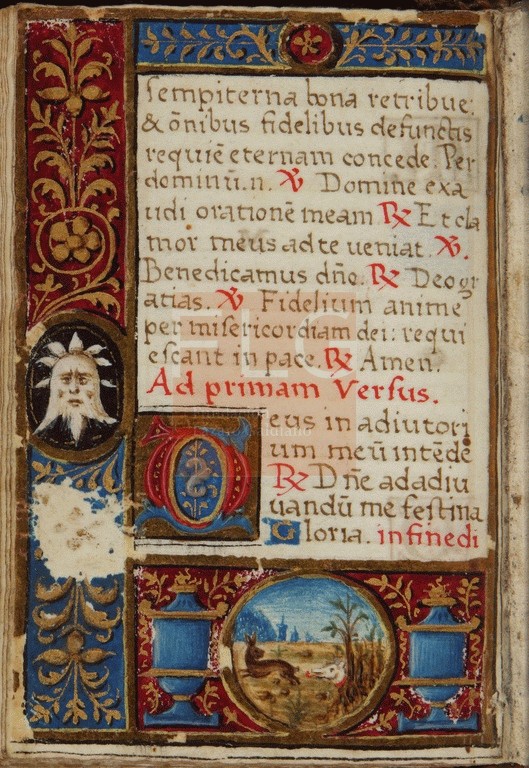 sempiterna bona retribue:
& õnibus fidelibus defunctis
requiē eternam concede. Per
dominū.n. ℣ Domine exa
udi orationē meam ℟ Et cla
mor meus ad te veniat. ℣.
Benedicamus dño. ℟ Deo gr
atias. ℣ Fidelium anime
per misericordiam dei: requi
escant in pace. ℟ Amen.
Ad primam Versus.
Deus in adiutori
um meū intēde
℟ Dñe ad adiu
uandū me festina
Gloria. in fine di
FLG